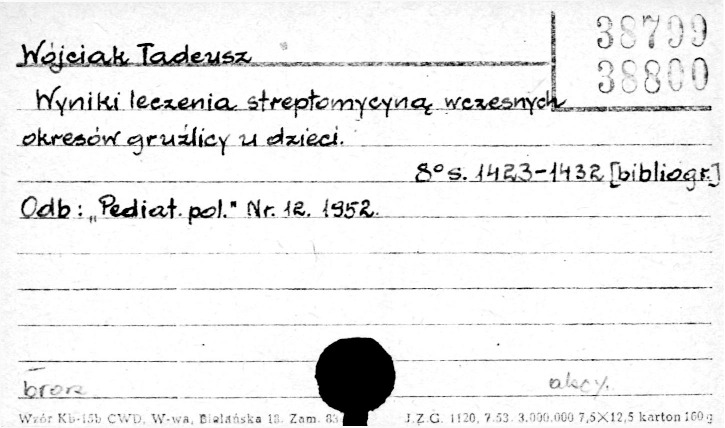 38799
38800
Wójciak Tadeusz
Wyniki leczenia streptomycyną wczesnych
okresów gruźlicy u dzieci.
8° s. 1423-1432 [bibliogr.]
Odb: „Pediat. pol." Nr. 12. 1952.
brosz akcy.
Wzór Kb-15b CWD, W-wa, Bielańska 18. Zam. 83 J.Z.G. 1120, 7.53. 3.000.000 7,5×12,5 karton 160 g